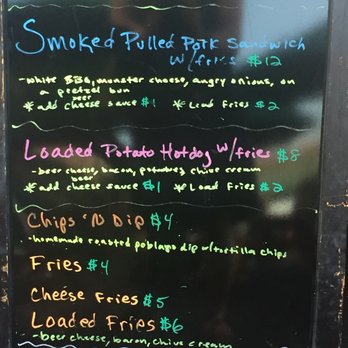 Smoked Pulled Pork Sandwich
w/fries $12
-white BBQ, munster cheese, angry onions, on
a pretzel bun
beer
*add cheese sauce $1 *Load Fries $2
Loaded Potato Hotdog w/fries $8
-beer cheese, bacon, potatoes, chive cream
beer
*add cheese sauce $1 *Load Fries $2
Chips 'N Dip $4
-homemade roasted poblano dip w/tortilla chips
Fries $4
Cheese Fries $5
Loaded Fries $6
-beer cheese, bacon, chive cream